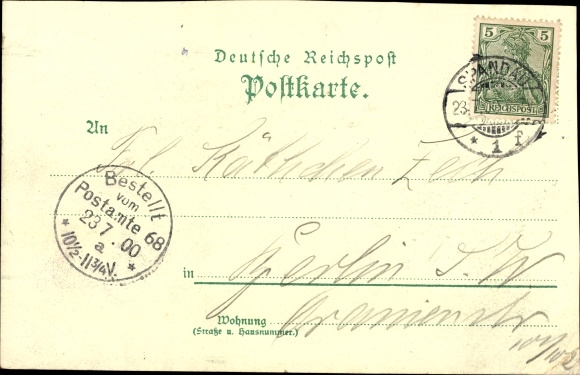 Deutsche Reichspost
Postkarte.
5 5
REICHSPOST
SPANDAU
23.
* 1 f
An
Frl. Käthchen Zech
Bestellt
vom
Postamte 68
23 7 00
a
* 10½-11¾V. *
in Berlin S.W
Wohnung Oranienstr
(Straße u. Hausnummer.)
101/102